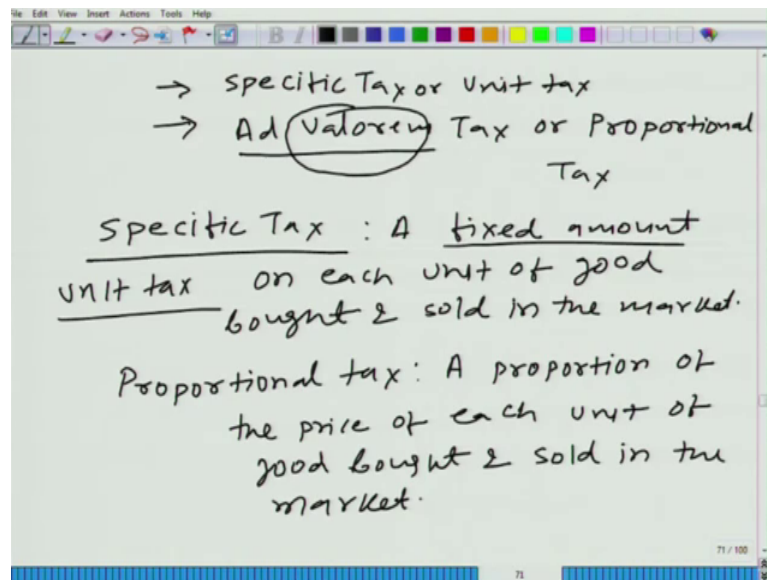 File Edit View Insert Actions Tools Help
B I
→ specific Tax or Unit tax
→ Ad Valorem Tax or Proportional
Tax
Specific Tax : A fixed amount
unit tax on each unit of good
bought & sold in the market.
Proportional tax : A proportion of
the price of each unit of
good bought & sold in the
market.
71 / 100
71